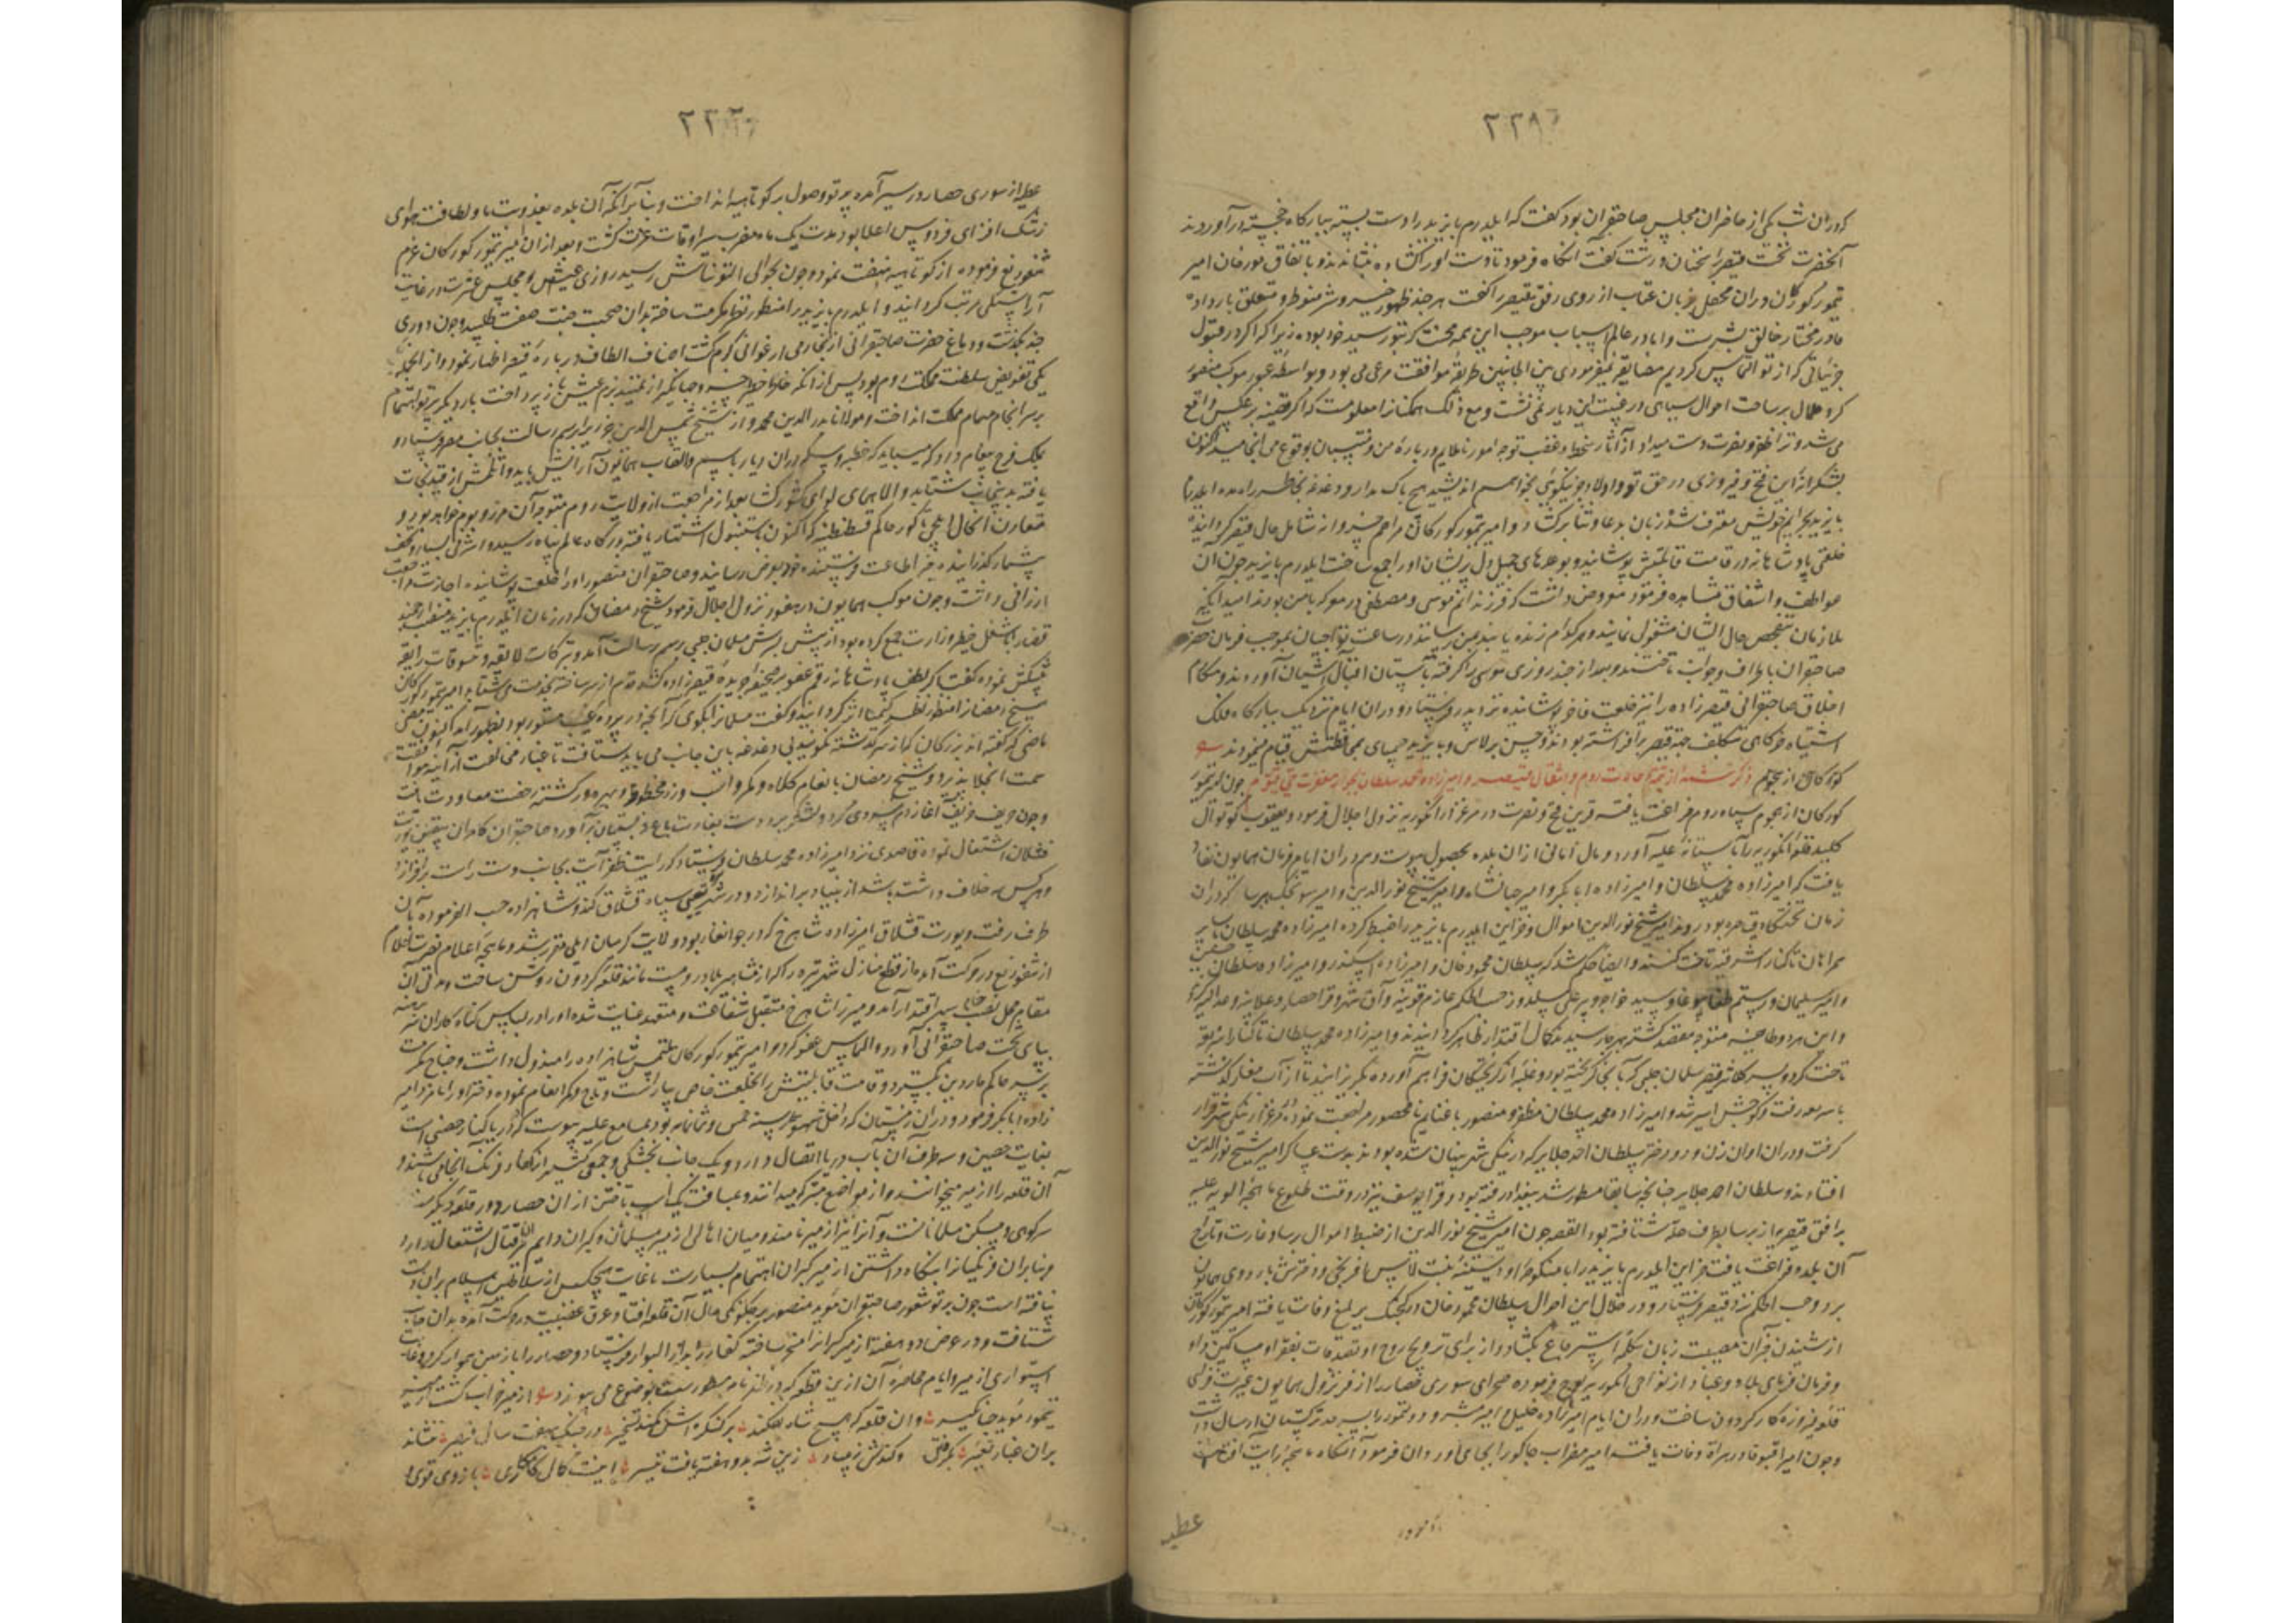 که در آن شب یکی از حاضران مجلس صاحبقران بود گفت که ایلدرم بایزید را دست بسته ببارگاه خجسته درآوردند
آنحضرت گفت آنگاه فرمود تا دست او را گشاده بنشاندند و باتفاق مورخان امیر
تیمور کورکان در آن محفل زبان عتاب از روی رفق بقیصر گفت هر چند ظهور خیر و شر منوط و متعلق باراده
قادر مختار خالق بشرست و اما در عالم اسباب موجب این همه محنت که بتو رسید خود بوده زیرا که اگر در قبول
جزئیاتی که از تو التماس کردیم مضایقه نمیفرمودی بین الجانبین طریقه موافقت مرعی می بود و بواسطه عبور موکب منصور
کرد ملال بر ساحت احوال سپاهی و رعیت این دیار نمی نشست و مع ذلک همکنانرا معلومست که اگر قضیه بر عکس واقع
می شد و ترا ظفر و نصرت دست میداد از آثار سخط و غضب تو چه امور ناملایم درباره من و منتسبان بوقوع می انجامید اکنون
بشکرانه این فتح و فیروزی در حق تو و اولاد جز نیکوئی نخواهم اندیشید هیچ باک مدار و دغدغه بخاطر راه مده ایلدرم
بایزید بجرایم خویش معترف شده زبان بدعا و ثنا برگشاد و امیر تیمور کورکانی مراحم خسروانه شامل حال قیصر گردانیده
خلعتی پادشاهانه در قامت قابلیتش پوشانید و بوعدهای جمیل دل پریشان او را جمع ساخت ایلدرم بایزید چون آن
عواطف و اشفاق مشاهده فرمود معروض داشت که فرزندانم موسی و مصطفی در معرکه با من بودند امید آنکه
ملازمان بتفحص حال ایشان مشغول نمایند و هر کدام زنده یابند بمن رسانند در ساعت تواجیان بموجب فرمان حضرت
صاحبقران باطراف و جوانب تاختند و بعد از چند روزی موسی را گرفته بآستان اقبال آشیان آوردند و مکارم
اخلاق صاحبقرانی قیصرزاده را نیز خلعت فاخر پوشانیده نزد پدر فرستاد و در آن ایام نزدیک ببارگاه فلک
اشتباه خرگاهی بتکلف جهة قیصر برافراشته بودند و حسن برلاس و بایزید چمپای بمحافظتش قیام مینمودند
ذکر شمه از تتمه حالات روم و انتقال قیصر و امیرزاده محمد سلطان بجوار مغفرت حی قیوم چون امیر تیمور
کورکان از هجوم سپاه روم فراغت یافته قرین فتح و نصرت در مرغزار انکوریه نزول اجلال فرمود و یعقوب کوتوال
کلید قلعه انکوریه را بآستانه علیه آورد و مال امانی از آن بلده بحصول پیوست و هم در آن ایام فرمان همایون نفاذ
یافت که امیرزاده محمد سلطان و امیرزاده ابابکر و امیر جهانشاه و امیر شیخ نورالدین و امیر سونجک ببرسا که در آن
زمان تختگاه قیصر بود روند امیر شیخ نورالدین اموال و خزاین ایلدرم بایزید را ضبط کرده امیرزاده محمد سلطان با سایر
همراهان تا کنار اسرقیه تاخت کنند و ایضا حکم شد که سلطان محمود خان و امیرزاده اسکندر و امیرزاده سلطان حسین
و امیر سلیمان و رستم طغای بوغا و سید خواجه و پیر علی سلدوز حسب الحکم عازم قونیه و آق شهر و قراحصار و علائیه و عدالیه گردند
و این هر دو طایفه متوجه مقصد گشته بهر جا رسیدند کمال اقتدار ظاهر گردانیدند و امیرزاده محمد سلطان تا کنار ازنیق
تاخت کرد و پسر کلانتر قیصر سلمان چلبی که آنجا گریخته بود و غلبه از گریختگان فراهم آورده بگریزانید تا از آب گذشته
باسره رفت و کوچش اسیر شد و امیرزاده محمد سلطان مظفر و منصور با غنایم نامحصور مراجعت نموده در مرغزار نیکی شهر قرار
گرفت و در آن اوان زن و دو دختر سلطان احمد جلایر که در نیکی شهر پنهان شده بودند بدست عساکر امیر شیخ نورالدین
افتادند و سلطان احمد جلایر چنانچه سابقا مسطور شد ببغداد رفته بود و قرا یوسف نیز در وقت طلوع ماهچه الویه علیه
بر افق قیصریه از برسا بطرف حله شتافته بود القصه چون امیر شیخ نورالدین از ضبط اموال برسا و غارت و تاراج
آن بلده فراغت یافت خزاین ایلدرم بایزید را با منکوحه او دسپنه بنت لاس افرنجی و دخترش باردوی همایون
برد و حسب الحکم نزد قیصر فرستاد و در خلال این احوال سلطان محمود خان در کجک برلیغ وفات یافته امیر تیمور کورکان
از شنیدن خبر آن مصیبت زبان بکلمه استرجاع بگشاد و از برای ترویح روح او تصدقات بفقرا و مساکین داد
و فرمان فرمای بلاد و عباد از نواحی انکوریه کوچ فرموده صحرای سوری حصار را از فر نزول همایون غیرت فزای
قلعه فیروزه کار گردون ساخت و در آن ایام امیرزاده خلیل و امیر مبشر و دولتمور را بسرحد ترکستان ارسال داشت
و چون امیر آقبوقا در هراة وفات یافت امیر مضراب جاکو را بجای او روان فرمود آنگاه ماهچه رایت آفتاب
عطیه
عطیه از سوری حصار در سیر آمده پرتو وصول بر کوتاهیه انداخت و بنا بر آنکه آن بلده بعذوبت ماء و لطافت هوای
رشک افزای فردوس اعلا بود مدت یک ماه مضرب سرادقات عزت گشت و بعد از آن امیر تیمور کورکان عزم
فرموده از کوتاهیه نهضت نمود و چون بحوالی التون تاش رسید روزی عیش و مجلس عشرت در غایت
آراستگی مرتب گردانید و ایلدرم بایزید را منظور نظر مکرمت ساخته بدان صحبت جنت صفت طلبید و چون دوری
چند بگذشت و دماغ حضرت صاحبقرانی از بخار می ارغوانی گرم گشت اصناف الطاف درباره قیصر اظهار نمود و از آنجمله
یکی تفویض سلطنت مملکت روم بود پس از آنکه خاطر خطیر خسرو جهانگیر از تمهید بزم عیش باز پرداخت بار دیگر پرتو اهتمام
بر سرانجام مهام مملکت انداخت و مولانا بدرالدین محمد و از شیخ شمس الدین جزری را برسم رسالت بجانب مصر فرستاد و
بملک فرج پیغام داد که میباید که خطبه و سکه در آن دیار باسم و القاب همایون آرایش یابد و اتلمش از قید نجات
یافته بدینجانب شتابد و الا همای لوای کشورگشا بعد از مراجعت از ولایت روم متوجه آن مرز و بوم خواهد بود و
مقارن آنحال ایلچی تکور حاکم قسطنطنیه که اکنون باستنبول اشتهار یافته بدرگاه عالم پناه رسیده اشرفی بسیار و تحف
بیشمار گذرانیده خبر اطاعت فرستنده خود بعرض رسانید و صاحبقران منصور او را خلعت پوشانیده اجازت مراجعت
ارزانی داشت و چون موکب همایون نزول اجلال فرمود شیخ رمضان که در زمان ایلدرم بایزید منصب ارجمند
قضا را با شغل خطیر وزارت جمع کرده بود از پیش پسرش سلمان چلبی برسم رسالت آمد و تبرکات لایقه و تنسوقات رایقه
پیشکش نموده گفت اگر لطف پادشاهانه رقم عفو بر صحیفه جریده قیصرزاده کشد قدم از سر ساخته بخدمت می شتابد امیر تیمور کورکان
شیخ رمضان را منظور نظر کیمیا اثر گردانید و گفت سلمان را بگوی که آنچه در پرده غیب مستور بود بظهور آمد اکنون مضی
ما مضی که گفته اند بزرگان که از سر گذشته نگویند بی دغدغه باین جانب می باید شتافت تا غبار مخالفت از آینه موافقت
سمت انجلا پذیرد و شیخ رمضان بانعام کلاه و کمر و اسب و زر محظوظ و بهره ور گشته رخصت معاودت یافت
و چون حریف خریف آغاز دم سردی کرد و لشکر برد دست بغارت باغ و بستان برآورد صاحبقران کامران بتعیین یورت
قشلاق اشتغال نموده قاصدی نزد امیرزاده محمد سلطان فرستاد که رایت ظفر آیت بجانب دست راست برافرازد
و هر کس سر خلاف داشته باشد از بنیاد براندازد و در شهر مغنی سیاه قشلاق کند و شاهزاده حسب الفرموده بآن
طرف رفت و یورت قشلاق امیرزاده شاهرخ که در جوانغار بود ولایت کرمیان ایلی مقرر شد و ماهچه اعلام نصرت اعلام
از در حرکت آمده از قطع منازل شهر تیره را که از مشاهیر بلاد رومست مانند قلعه گردون روشن ساخت و مدتی آن
مقام محل نصب خیام سپهر اقتدار آمد و میرزا شاهرخ متقبل شفاعت و متعهد عنایت شده او را در لباس گناه کاران سر برهنه
بپای تخت صاحبقرانی آورد و التماس عفو کرد و امیر تیمور کورکان ملتمس شاهزاده را مبذول داشت و جناح مکرمت
بر سر حاکم ماردین بگسترد و قامت قابلیتش را بخلعت خاص بیاراست و تاج و کمر انعام نموده دختر او را نامزد امیر
زاده ابابکر فرمود و در آن زمستان که داخل شهور سنه خمس و ثمانمایه بود بمسامع علیه پیوست که در دریا کنار حصنی است
بغایت حصین و سه طرف آن بآب دریا اتصال دارد و یک جانب بخشکی و جمعی کثیر از کفار فرنک آنجا می باشند و
آن قلعه را ازمیر میخوانند و از مواضع متبرکه میدانند و بمسافت یک اسب تاختن از آن حصار دور قلعه دیگر بر سر
کوهی و مسکن مسلمانانست و آنرا نیز ازمیر نامند و میان اهالی ازمیر مسلمانان و گبران دایم نایره قتال اشتعال دارد
و بنابر آن فرنگیان را بنگاه داشتن ازمیر گبران اهتمام بسیارست تا غایت هیچکس از سلاطین اسلام بر آن دست
نیافته است چون پرتو شعور صاحبقران مؤید منصور بر چگونگی حال آن قلعه افتاد عرق عصبیت در حرکت آمده بدان جانب
شتافت و در عرض دو هفته ازمیر گبران را فتح ساخته کفار را بدار البوار فرستاد و حصار را با زمین هموار کرد و غایت
استواری ازمیر و ایام محاصره آن ازین قطعه که در ظفرنامه مسطورست بوضوح می پیوندد ازمیر خراب گشت از میر
تیمور مؤید جهانگیر وان قلعه که هیچ شاه بر کنگره اش کمند تسخیر در جنگ هفت سال قیصر ننشاند
بر آن غبار تغییر نگرفتی زین شه بدو هفته یافت تیسیر اینست کمال کامکاری بازوی قوی و